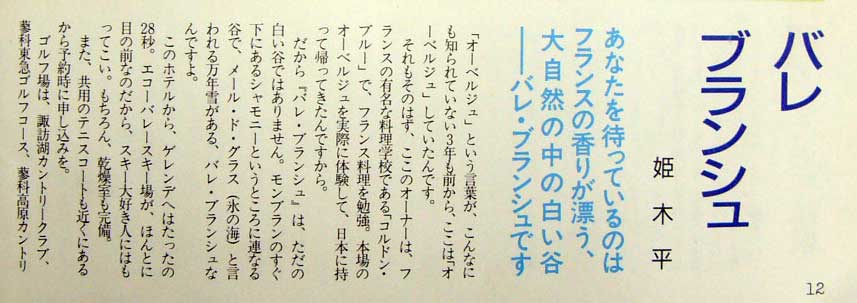 バレ
ブランシュ
姫木平
あなたを待っているのは
フランスの香りが漂う、
大自然の中の白い谷
──バレ・ブランシュです
「オーベルジュ」という言葉が、こんなに
も知られていない3年も前から、ここは「オ
ーベルジュ」していたんです。
それもそのはず、ここのオーナーは、フ
ランスの有名な料理学校である「コルドン・
ブルー」で、フランス料理を勉強。本場の
オーベルジュを実際に体験して、日本に持
って帰ってきたんですから。
だから『バレ・ブランシュ』は、ただの
白い谷ではありません。モンブランのすぐ
下にあるシャモニーというところに連なる
谷で、メール・ド・グラス（氷の海）と言
われる万年雪がある、バレ・ブランシュな
んですよ。
このホテルから、ゲレンデへはたったの
28秒。エコーバレースキー場が、ほんとに
目の前なのだから、スキー大好き人にはも
ってこい。もちろん、乾燥室も完備。
また、共用のテニスコートも近くにある
から予約時に申し込みを。
ゴルフ場は、諏訪湖カントリークラブ、
蓼科東急ゴルフコース、蓼科高原カントリ
12